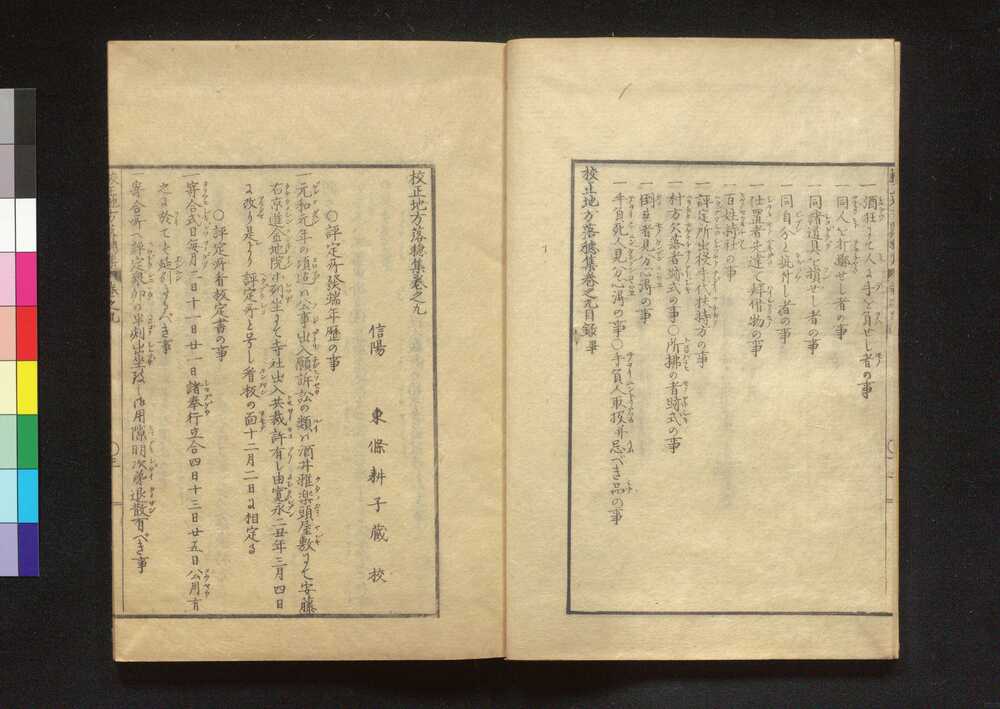 一酒狂にて人に手を負せし者の事
一同人を打擲せし者の事
一同諸道具を損せし者の事
一同自分と疵付し者の事
一仕置者先達て拝借物の事
一百姓持社の事
一評定所出役手代扶持方の事
一村方欠落者跡式の事〇所拂の者跡式の事
一倒死者見分心得の事
一手負死人見分心得の事〇手負人取扱并忌べき品の事
校正地方落穂集巻之九目録畢
校正地方落穂集巻之九
信陽 東條耕子蔵校
〇評定所發端年歴の事
一元和元年の頃迄は公事出入願訴訟の類は酒井雅楽頭屋敷にて安藤
右京進金地院小列坐にて寺社出入共裁許有し由寛永二丑年三月四日
に改り是より評定所と号し看板の面十二月二日に相定る
〇評定所看板定書の事
一寄合式日毎月二日十一日廿一日諸奉行立合四日十三日廿五日公用有
之に於ても延引すべき事
一寄合所へ評定衆卯の半刻出坐致し御用隙明次第退散有べき事